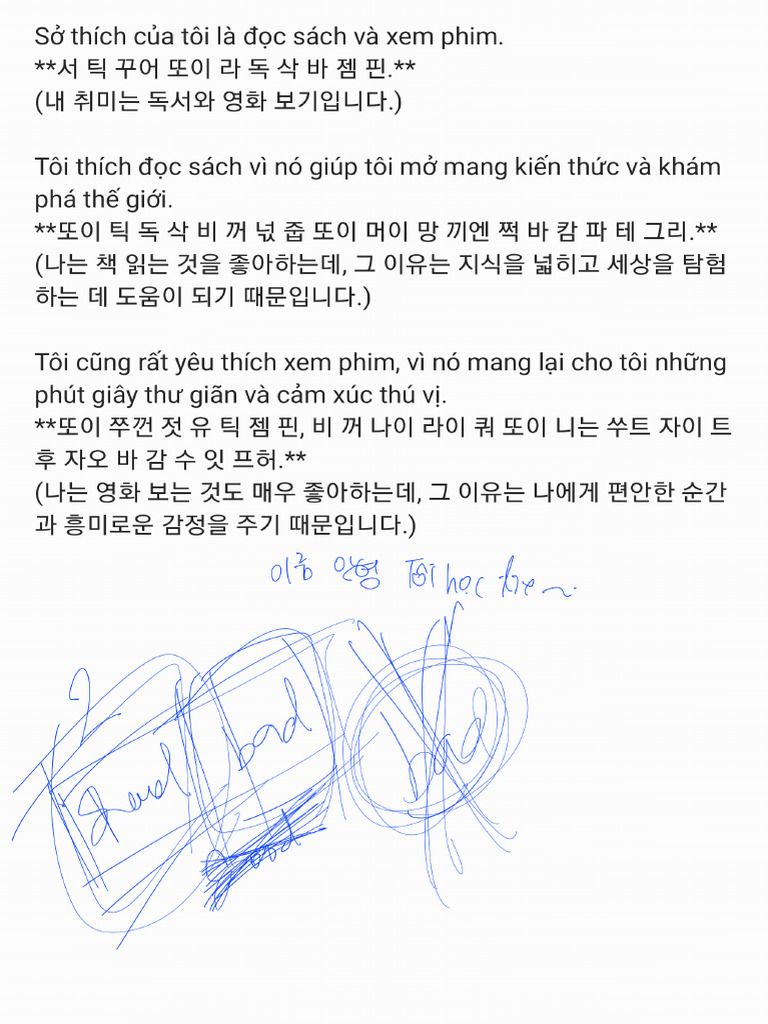 Sở thích của tôi là đọc sách và xem phim.
**서 틱 꾸어 또이 라 독 삭 바 젬 핀.**
(내 취미는 독서와 영화 보기입니다.)
Tôi thích đọc sách vì nó giúp tôi mở mang kiến thức và khám
phá thế giới.
**또이 틱 독 삭 비 꺼 넋 줍 또이 머이 망 끼엔 쩍 바 캄 파 테 그리.**
(나는 책 읽는 것을 좋아하는데, 그 이유는 지식을 넓히고 세상을 탐험
하는 데 도움이 되기 때문입니다.)
Tôi cũng rất yêu thích xem phim, vì nó mang lại cho tôi những
phút giây thư giãn và cảm xúc thú vị.
**또이 쭈껀 젓 유 틱 젬 핀, 비 꺼 나이 라이 쿼 또이 니는 쑤트 자이 트
후 자오 바 감 수 잇 프허.**
(나는 영화 보는 것도 매우 좋아하는데, 그 이유는 나에게 편안한 순간
과 흥미로운 감정을 주기 때문입니다.)
이름 안형 Tôi học
bad